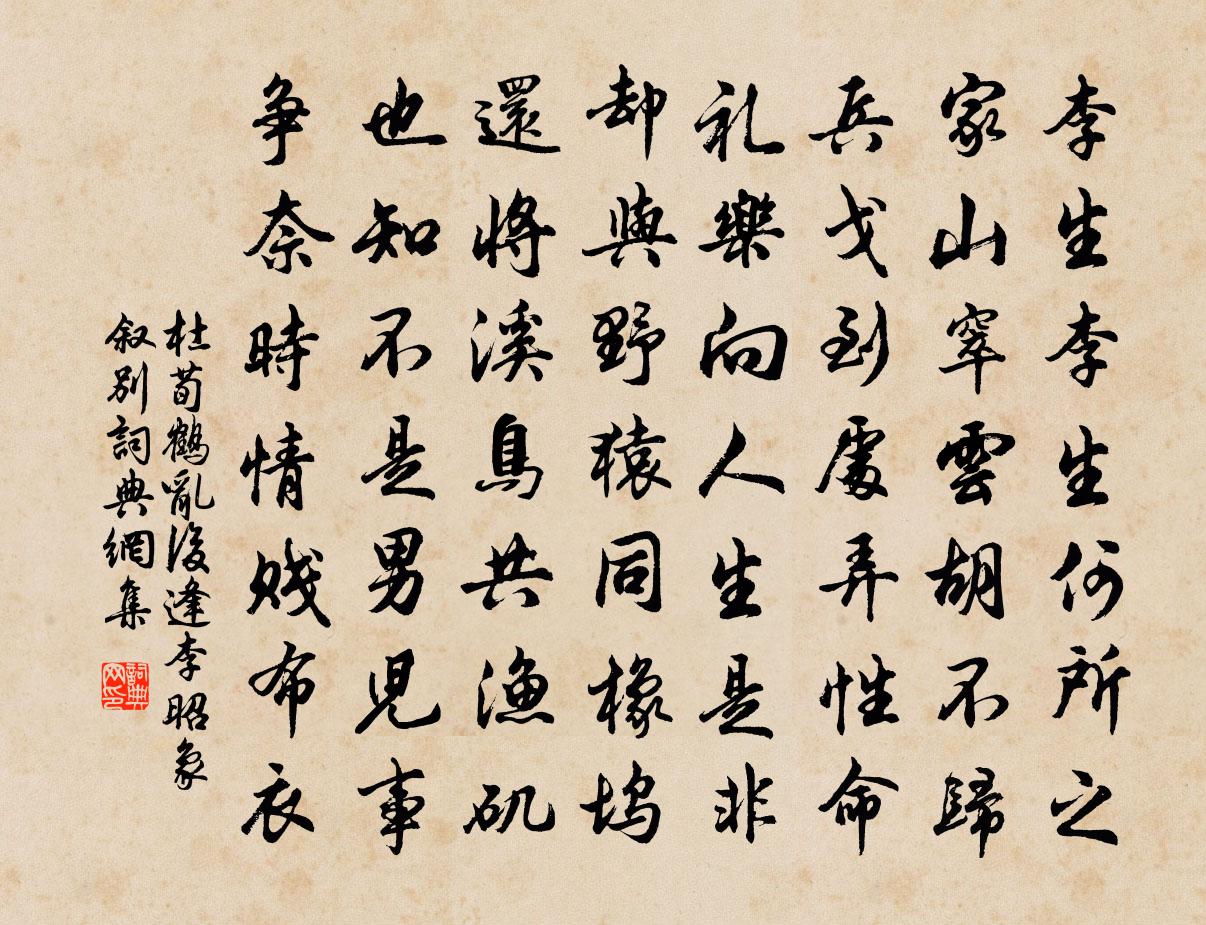 李生李生何所之
家山窣雲胡不歸
兵戈到處弄性命
礼樂向人生是非
却與野猿同橡塢
還將溪鳥共漁矶
也知不是男児事
争奈時情賤布衣
杜荀鶴亂後逢李昭象
叙别詞典網集
詞典网印